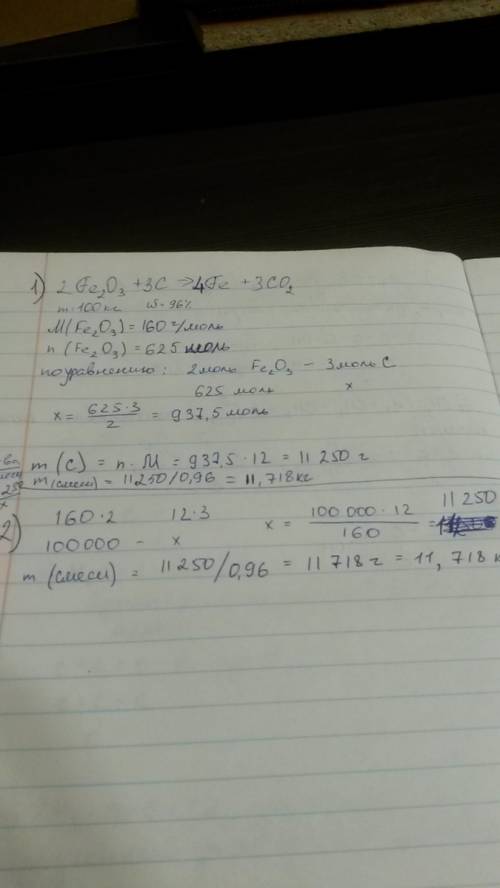 1) 2Fe₂O₃ + 3C → 4Fe + 3CO₂
m=100кг ω=96%
M(Fe₂O₃) = 160 г/моль
n(Fe₂O₃) = 625 моль
по уравнению: 2 моль Fe₂O₃ – 3 моль C
625 моль x
x = 625·3 / 2 = 937,5 моль
m(C) = n·M = 937,5·12 = 11 250 г
m(смеси) = 11250/0,96 = 11,718 кг
2) 160·2 12·3 x = 100 000·12 / 160 = 11 250
100000 – x
m(смеси) = 11 250/0,96 = 11 718 г = 11, 718 к